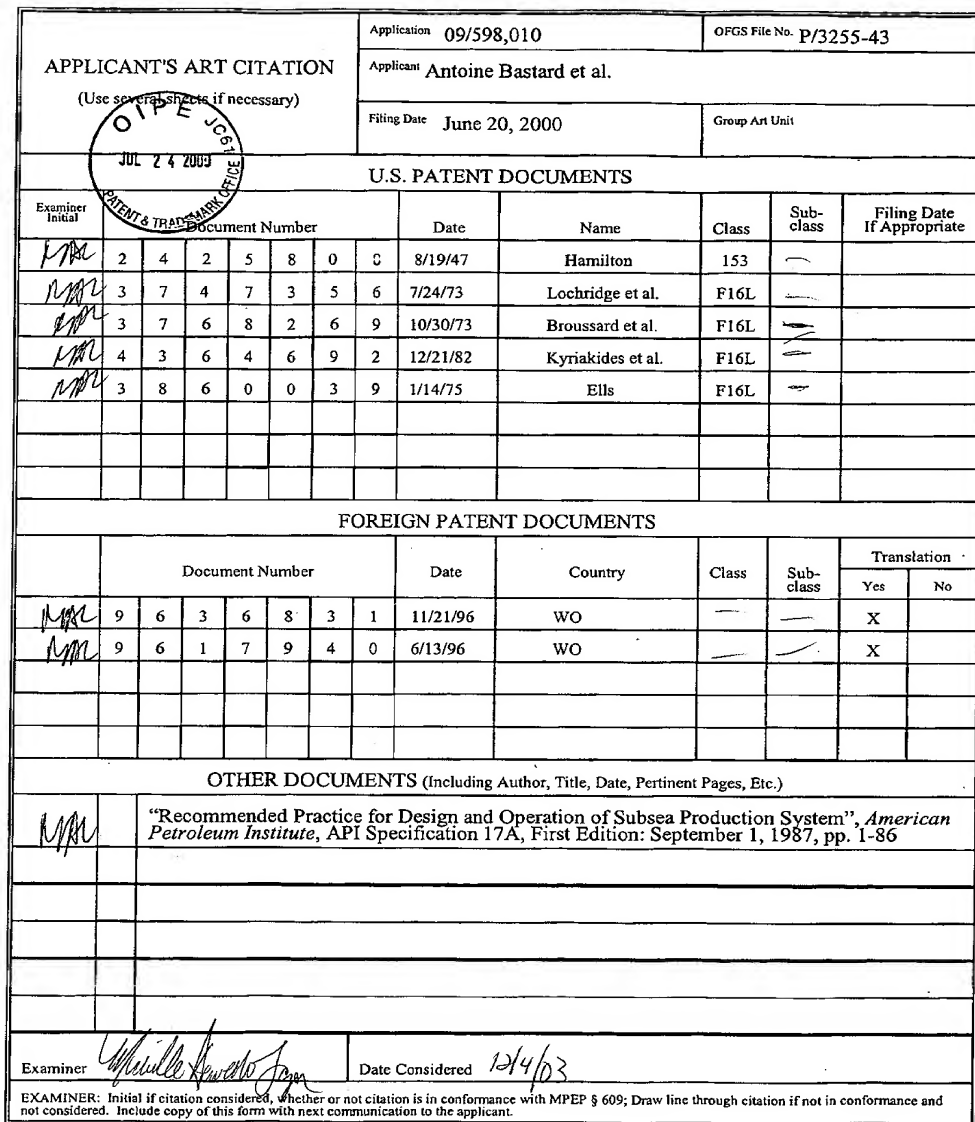 Application 09/598,010
OFGS File No. P/3255-43
APPLICANT'S ART CITATION
(Use several sheets if necessary)
Applicant Antoine Bastard et al.
Filing Date June 20, 2000
Group Art Unit
OIPE JC61
JUL 24 2000
PATENT & TRADEMARK OFFICE
U.S. PATENT DOCUMENTS
Examiner Initial Document Number Date Name Class Sub-class Filing Date If Appropriate
2 4 2 5 8 0 8/19/47 Hamilton 153 —
3 7 4 7 3 5 6 7/24/73 Lochridge et al. F16L —
3 7 6 8 2 6 9 10/30/73 Broussard et al. F16L —
4 3 6 4 6 9 2 12/21/82 Kyriakides et al. F16L —
3 8 6 0 0 3 9 1/14/75 Ells F16L —
FOREIGN PATENT DOCUMENTS
Document Number Date Country Class Sub-class Translation Yes No
9 6 3 6 8 3 1 11/21/96 WO — — X
9 6 1 7 9 4 0 6/13/96 WO — — X
OTHER DOCUMENTS (Including Author, Title, Date, Pertinent Pages, Etc.)
"Recommended Practice for Design and Operation of Subsea Production System", American
Petroleum Institute, API Specification 17A, First Edition: September 1, 1987, pp. 1-86
Examiner
Date Considered 12/4/03
EXAMINER: Initial if citation considered, whether or not citation is in conformance with MPEP § 609; Draw line through citation if not in conformance and
not considered. Include copy of this form with next communication to the applicant.